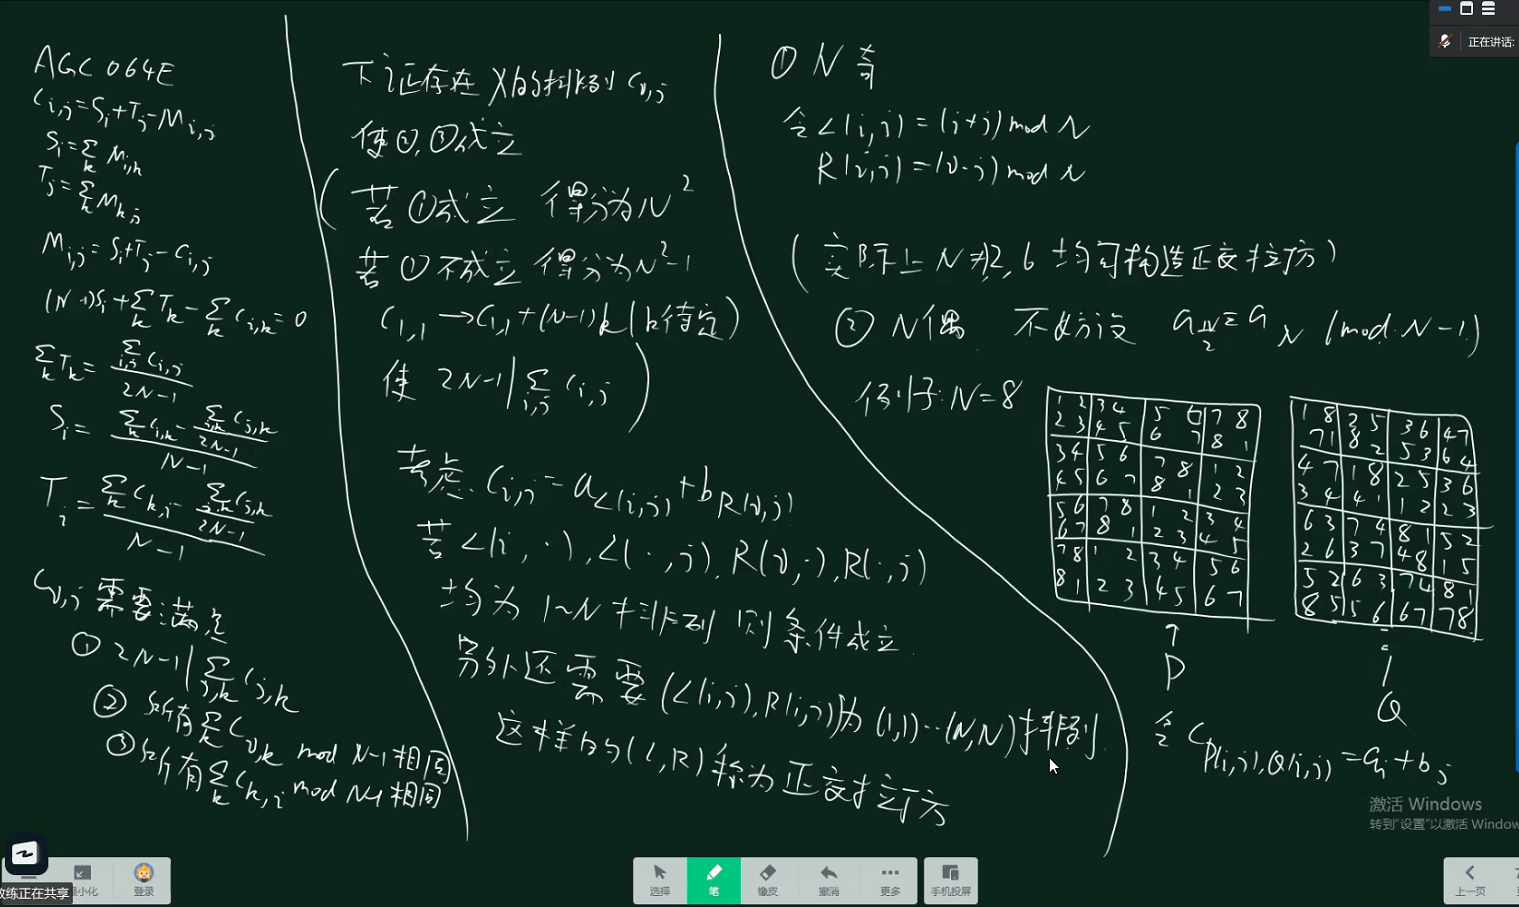 AGC 064E
C_{i,j}=S_i+T_j-M_{i,j}
S_i=∑_k M_{i,k}
T_j=∑_k M_{k,j}
M_{i,j}=S_i+T_j-C_{i,j}
(N-1)S_i+∑_k T_k-∑_k C_{i,k}=0
∑_k T_k=∑_{i,j} C_{i,j}/(2N-1)
S_i=(∑_k C_{i,k}-∑_{j,k} C_{j,k}/(2N-1))/(N-1)
T_i=(∑_k C_{k,i}-∑_{j,k} C_{j,k}/(2N-1))/(N-1)
C_{i,j}需要满足
① 2N-1|∑_{j,k} C_{j,k}
② 所有∑_k C_{i,k} mod N-1相同
③ 所有∑_k C_{k,i} mod N-1相同
下证存在X的排列C_{i,j}
使②,③成立
(若①成立 得分为N²
若①不成立 得分为N²-1
C_{1,1}→C_{1,1}+(N-1)k(k待定)
使 2N-1|∑_{i,j} C_{i,j})
考虑 C_{i,j}=a_{L(i,j)}+b_{R(i,j)}
若L(i,·),L(·,j),R(i,·),R(·,j)
均为1~N排列 则条件成立
另外还需要(L(i,j),R(i,j))为(1,1)…(N,N)排列
这样的(L,R)称为正交拉丁方
① N奇
令L(i,j)=(i+j)mod N
R(i,j)=(i-j)mod N
(实际上N≠2,6均可构造正交拉丁方)
② N偶 不妨设 a_{N/2}≡a_N (mod N-1)
例子:N=8
1 2 3 4 5 6 7 8
2 3 4 5 6 7 8 1
3 4 5 6 7 8 1 2
4 5 6 7 8 1 2 3
5 6 7 8 1 2 3 4
6 7 8 1 2 3 4 5
7 8 1 2 3 4 5 6
8 1 2 3 4 5 6 7
↑
P
1 8 2 5 3 6 4 7
7 1 8 2 5 3 6 4
4 7 1 8 2 5 3 6
3 4 4 1 1 2 2 3
6 3 7 4 8 1 5 2
2 6 3 7 4 8 1 5
5 2 6 3 7 4 8 1
8 5 5 6 6 7 7 8
Q
令 C_{P(i,j),Q(i,j)}=a_i+b_j
正在讲话:
激活 Windows
转到"设置"以激活 Window
登录
教练正在共享
选择
笔
橡皮
撤消
更多
手机投屏
上一页